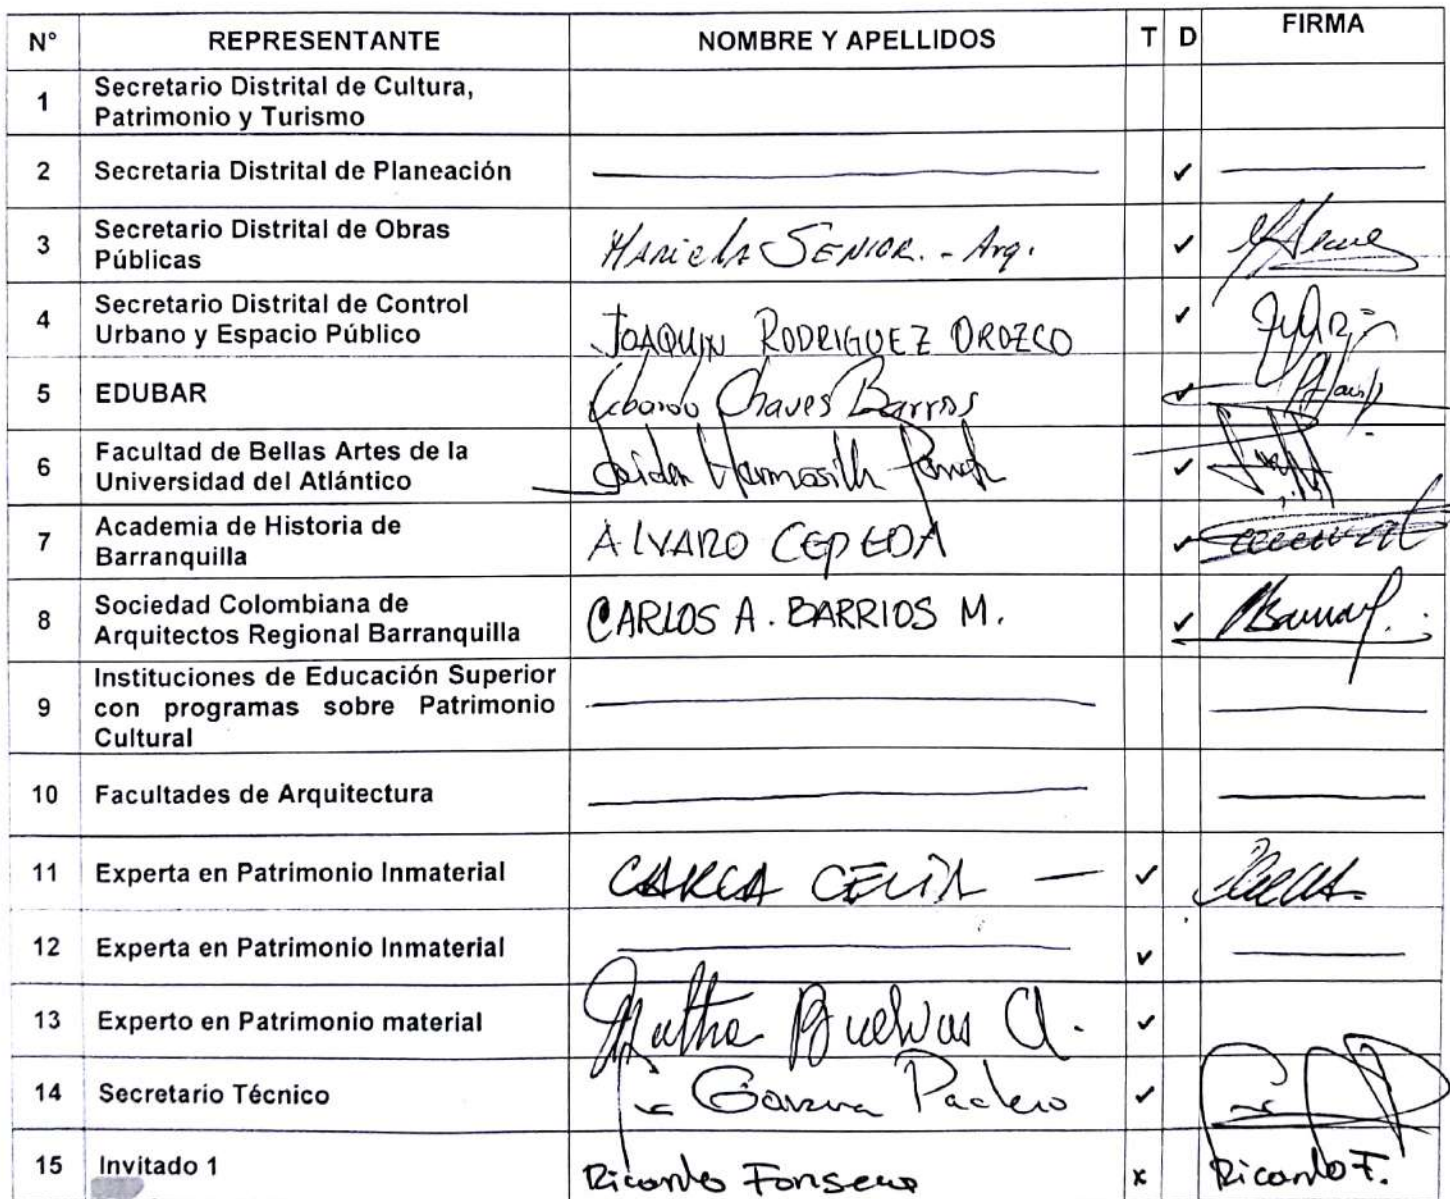 N° REPRESENTANTE NOMBRE Y APELLIDOS T D FIRMA
1 Secretario Distrital de Cultura,
Patrimonio y Turismo
2 Secretaria Distrital de Planeación ✓
3 Secretario Distrital de Obras
Públicas Mariela SENIOR. - Arq. ✓
4 Secretario Distrital de Control
Urbano y Espacio Público JOAQUIN RODRIGUEZ OROZCO ✓
5 EDUBAR Chaves Barros ✓
6 Facultad de Bellas Artes de la
Universidad del Atlántico ✓
7 Academia de Historia de
Barranquilla ALVARO CEPEDA ✓
8 Sociedad Colombiana de
Arquitectos Regional Barranquilla CARLOS A. BARRIOS M. ✓
9 Instituciones de Educación Superior
con programas sobre Patrimonio
Cultural
10 Facultades de Arquitectura
11 Experta en Patrimonio Inmaterial CARLA CELIA ✓
12 Experta en Patrimonio Inmaterial ✓
13 Experto en Patrimonio material ✓
14 Secretario Técnico ✓
15 Invitado 1 Ricardo Fonseca x Ricardo F.